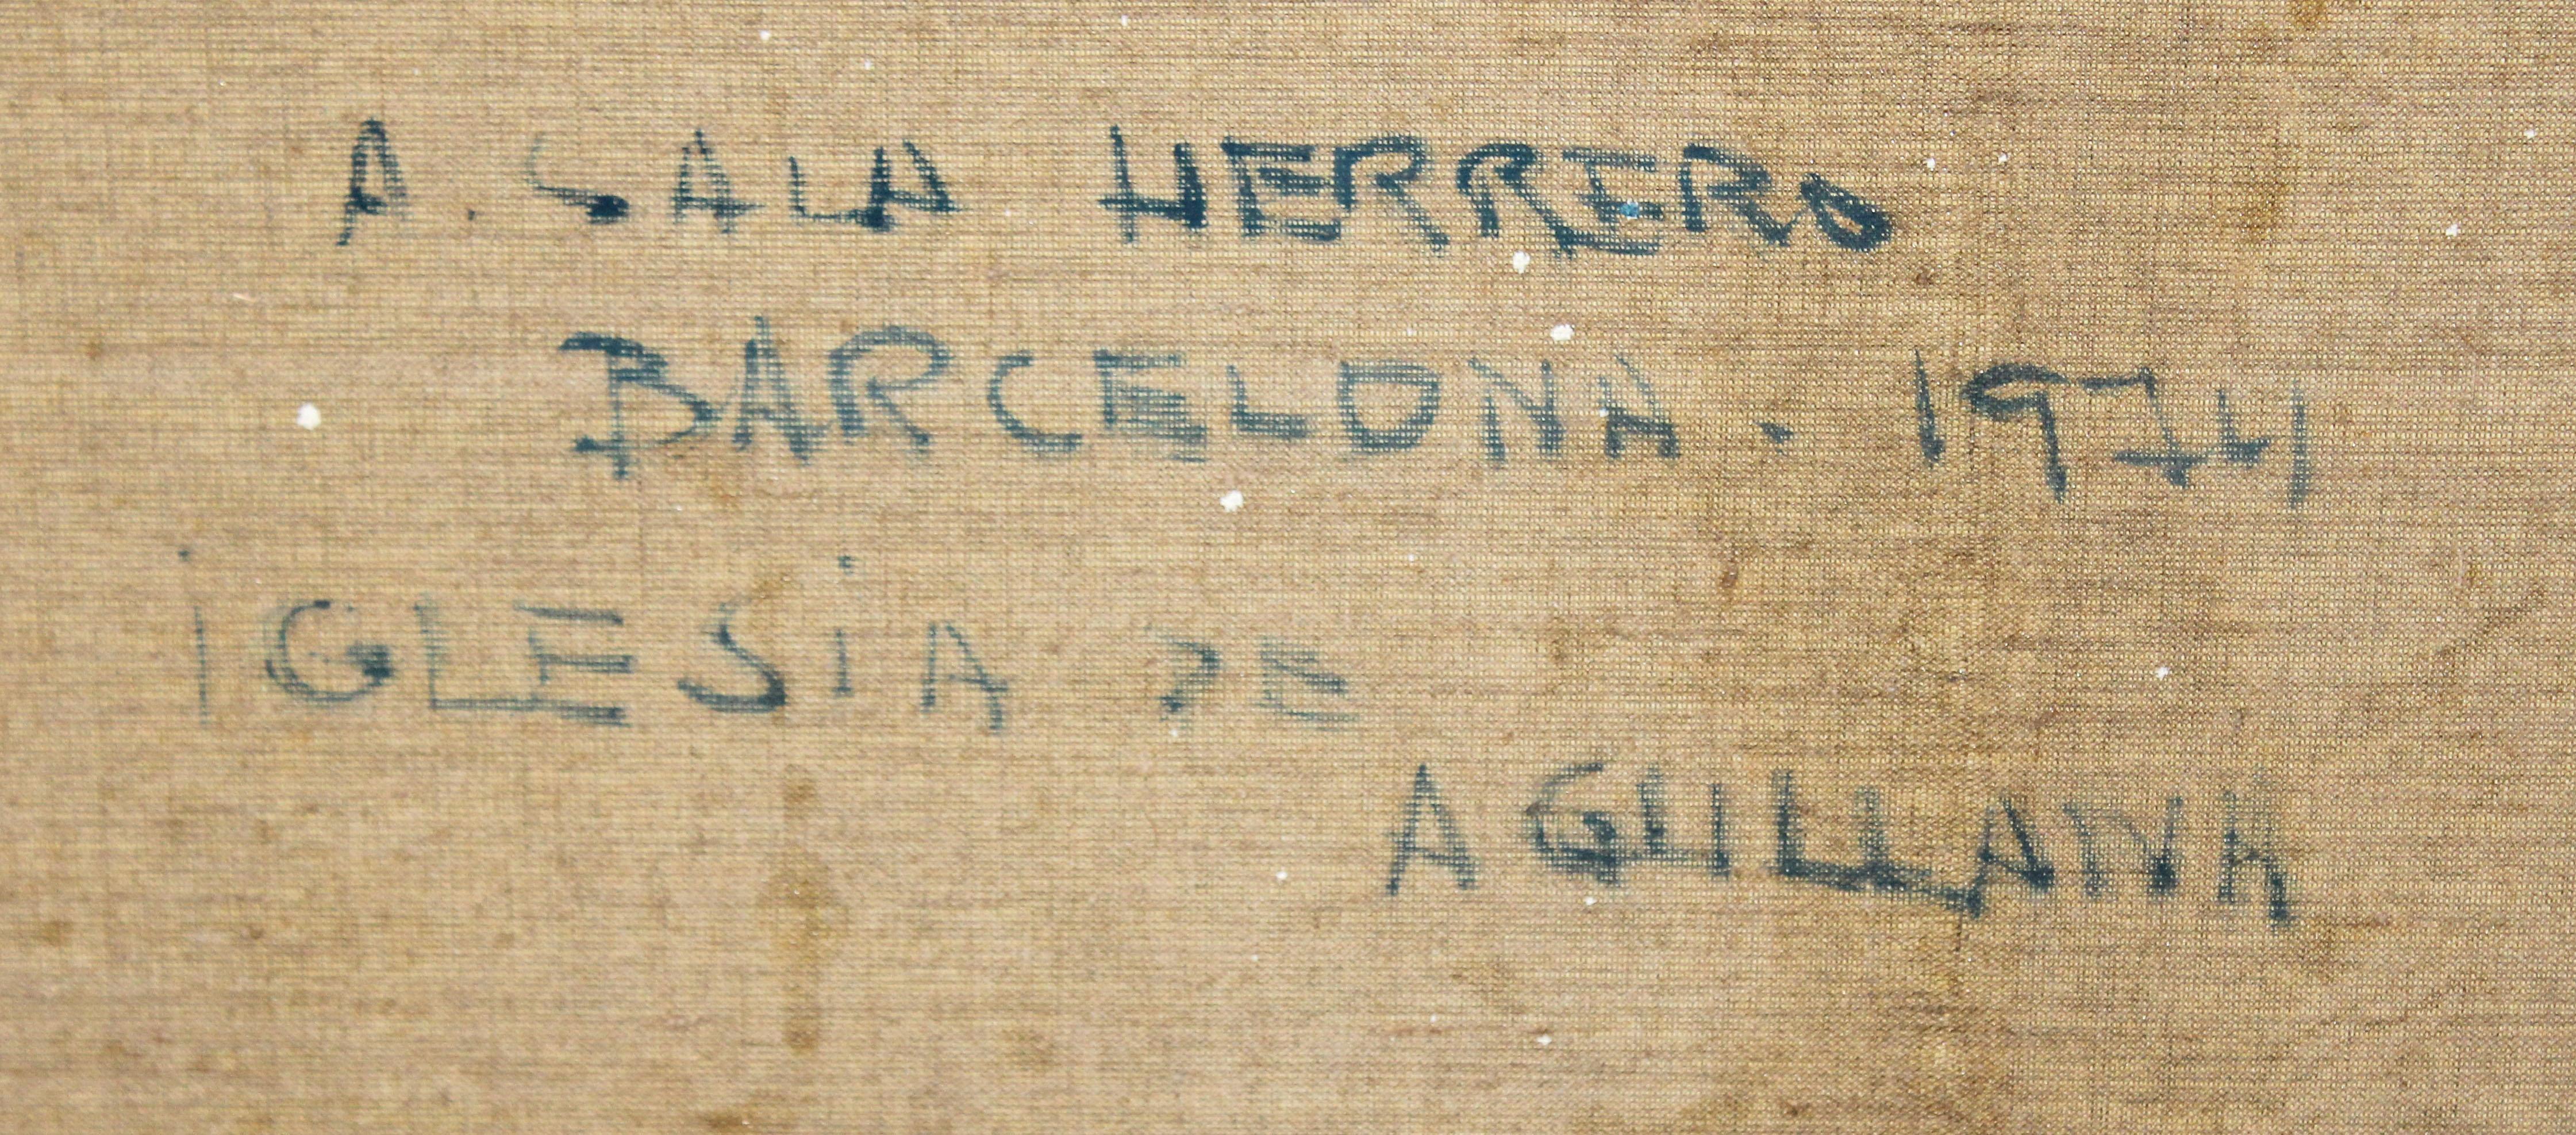 A. SALA HERRERO
BARCELONA. 1974
iGLESiA DE
AGULLANA